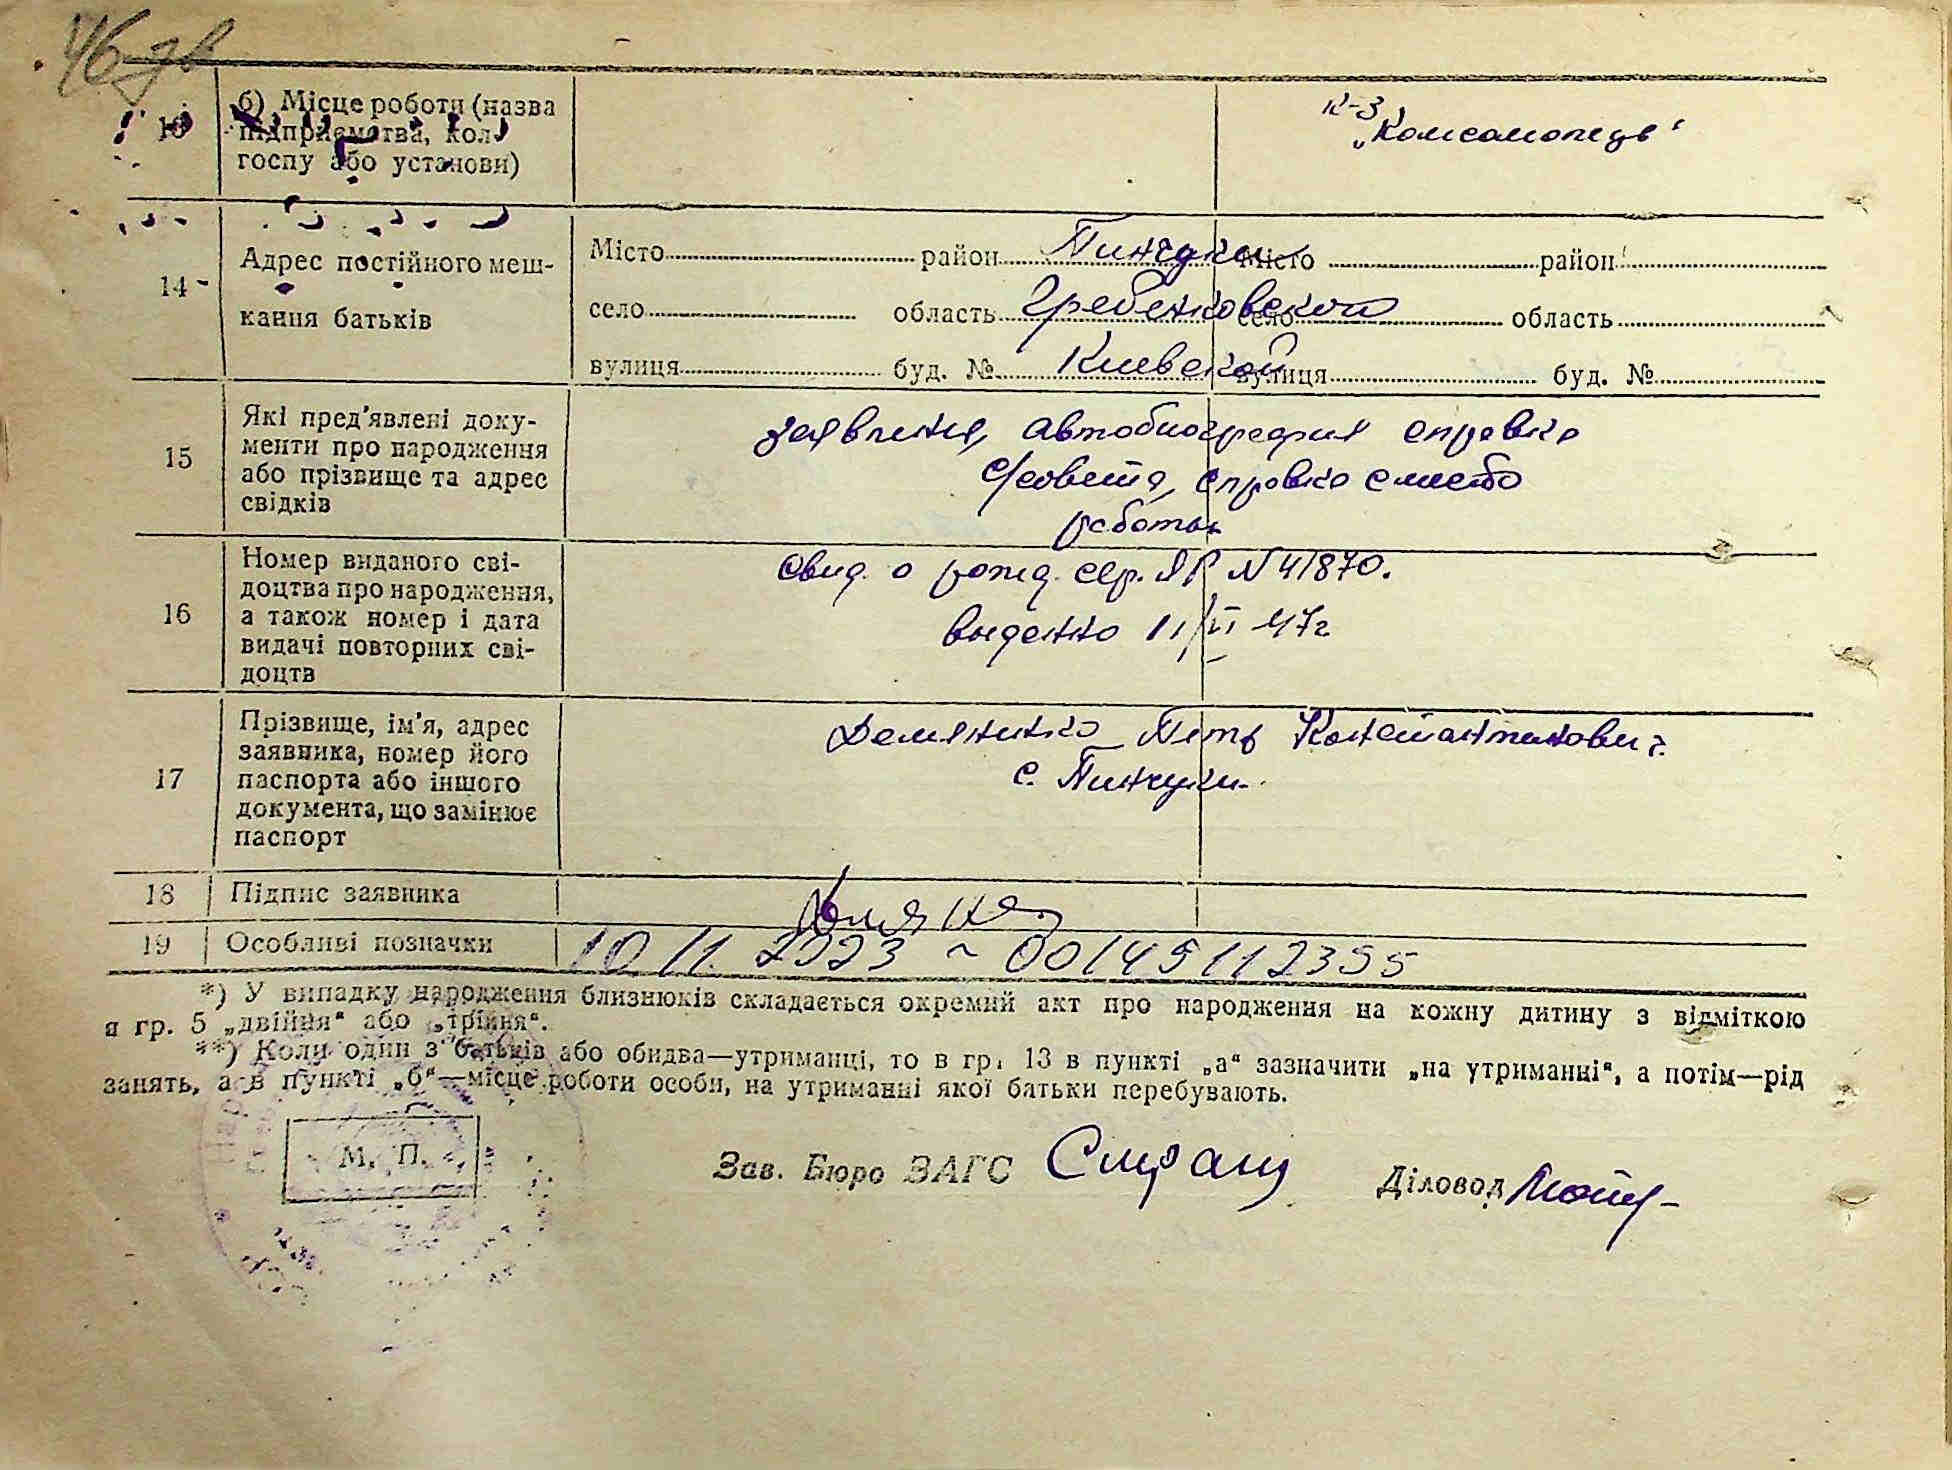 46 зв
13 б) Місце роботи (назва
підприємства, кол-
госпу або установи)
к-з
„Комсомолець"
14 Адрес постійного меш-
кання батьків
Місто район Пинчуки Місто район
село область Гребенковской село область
вулиця буд. № Киевской вулиця буд. №
15 Які пред'явлені доку-
менти про народження
або прізвище та адрес
свідків
заявления, автобиография справка
с/совета, справка с место
работы
16 Номер виданого сві-
доцтва про народження,
а також номер і дата
видачі повторних сві-
доцтв
свид. о рожд. сер. ЯР N 41870.
выдано 11/VI 47г
17 Прізвище, ім'я, адрес
заявника, номер його
паспорта або іншого
документа, що замінює
паспорт
Демяненко Петр Константинович.
с. Пинчуки.
18 Підпис заявника
19 Особливі позначки 10.11.2023 ~ 00145112355
*) У випадку народження близнюків складається окремий акт про народження на кожну дитину з відміткою
в гр. 5 „двійня" або „трійня".
**) Коли один з батьків або обидва—утриманці, то в гр. 13 в пункті „а" зазначити „на утриманні", а потім—рід
занять, а в пункті „б"—місце роботи особи, на утриманні якої батьки перебувають.
М. П.
Зав. Бюро ЗАГС Діловод